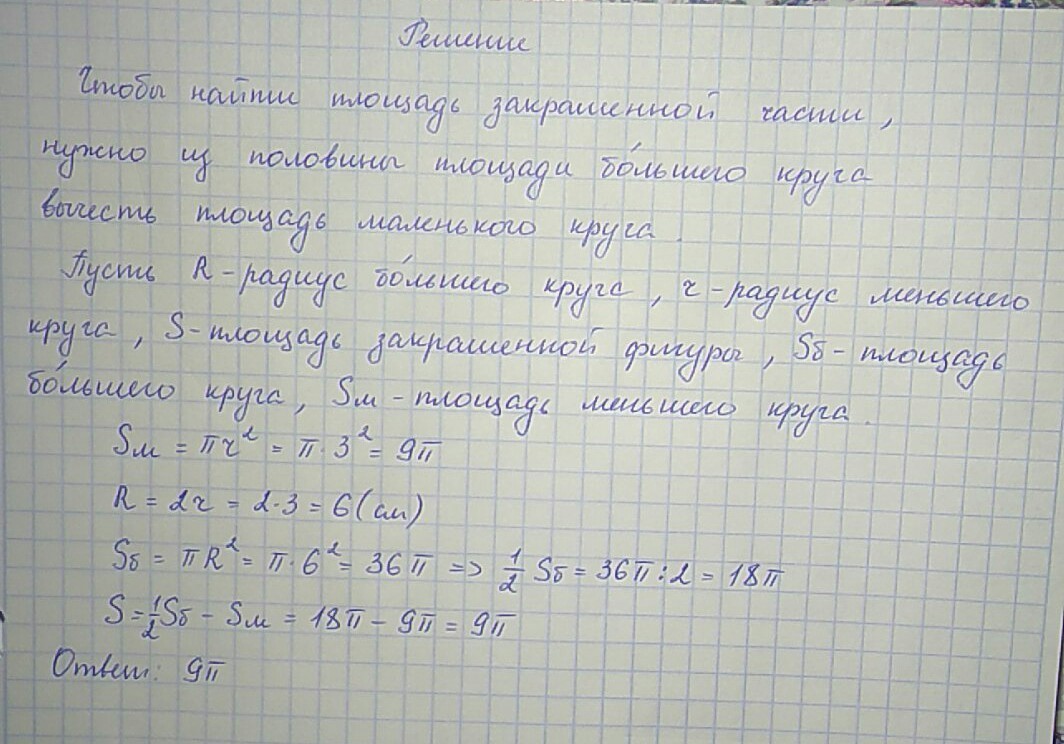 Решение
Чтобы найти площадь закрашенной части,
нужно из половины площади бо́льшего круга
вычесть площадь маленького круга.
Пусть R - радиус бо́льшего круга, r - радиус меньшего
круга, S - площадь закрашенной фигуры, Sб - площадь
бо́льшего круга, Sм - площадь меньшего круга.
Sм = πr² = π·3² = 9π
R = 2r = 2·3 = 6 (см)
Sб = πR² = π·6² = 36π => 1/2 Sб = 36π:2 = 18π
S = 1/2 Sб - Sм = 18π - 9π = 9π
Ответ: 9π